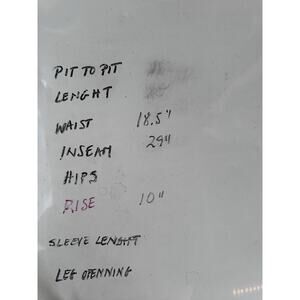 PIT TO PIT
LENGHT
WAIST 18.5"
INSEAM 29"
HIPS
RISE 10"
SLEEVE LENGHT
LEG OPENNING